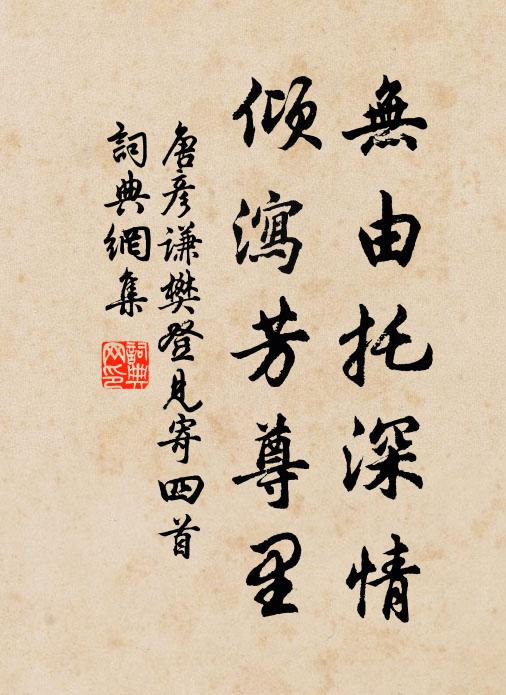 無由托深情
傾瀉芳尊里
唐彦谦樊登見寄四首
詞典網集
詞典
网印